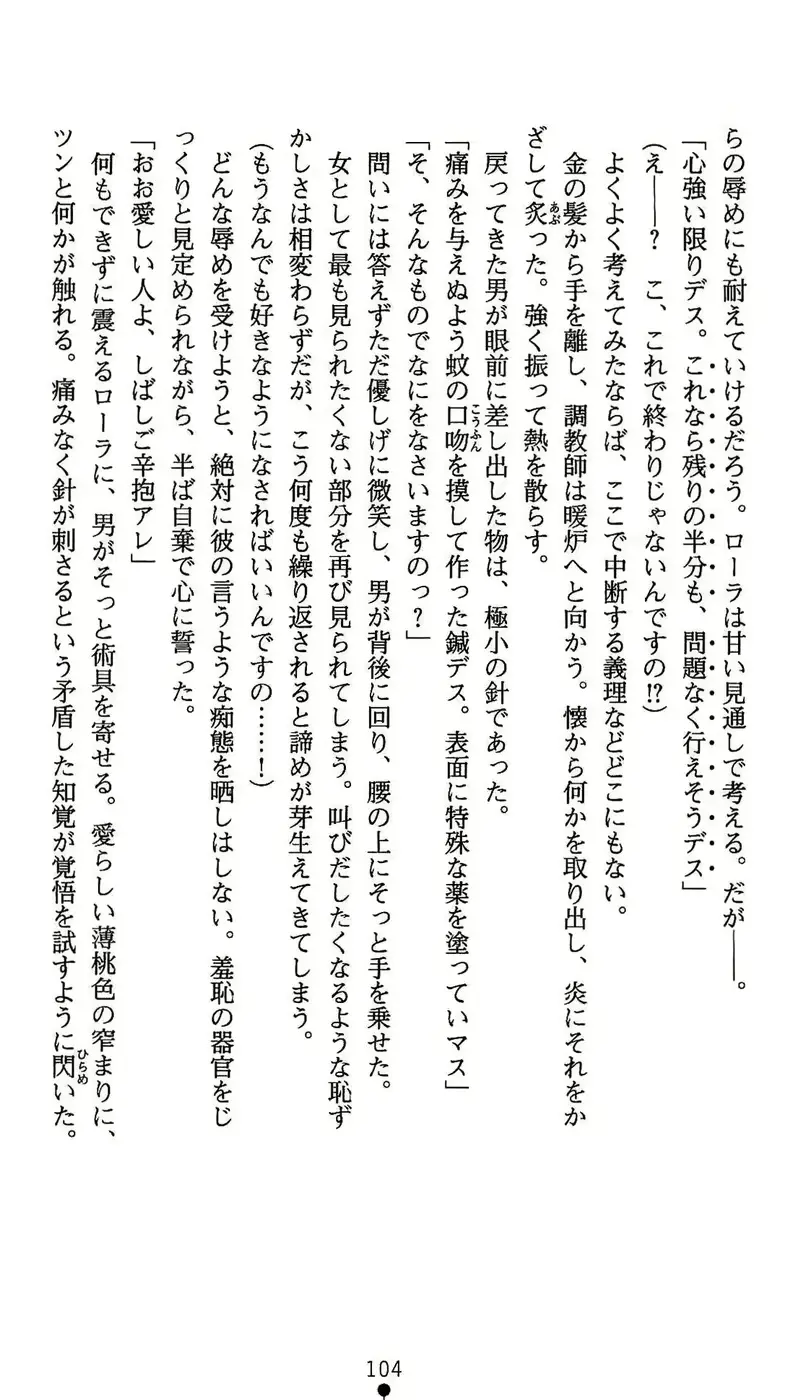 らの辱めにも耐えていけるだろう。ローラは甘い見通しで考える。だが――。
「心強い限りデス。これなら残りの半分も、問題なく行えそうデス」
(え――？　こ、これで終わりじゃないんですの!?)
よくよく考えてみたならば、ここで中断する義理などどこにもない。
金の髪から手を離し、調教師は暖炉へと向かう。懐から何かを取り出し、炎にそれをか
ざして炙った。強く振って熱を散らす。
戻ってきた男が眼前に差し出した物は、極小の針であった。
「痛みを与えぬよう蚊の口吻を摸して作った鍼デス。表面に特殊な薬を塗っていマス」
「そ、そんなものでなにをなさいますのっ？」
問いには答えずただ優しげに微笑し、男が背後に回り、腰の上にそっと手を乗せた。
女として最も見られたくない部分を再び見られてしまう。叫びだしたくなるような恥ず
かしさは相変わらずだが、こう何度も繰り返されると諦めが芽生えてきてしまう。
(もうなんでも好きなようになさればいいんですの……！)
どんな辱めを受けようと、絶対に彼の言うような痴態を晒しはしない。羞恥の器官をじ
っくりと見定められながら、半ば自棄で心に誓った。
「おお愛しい人よ、しばしご辛抱アレ」
何もできずに震えるローラに、男がそっと術具を寄せる。愛らしい薄桃色の窄まりに、
ツンと何かが触れる。痛みなく針が刺さるという矛盾した知覚が覚悟を試すように閃いた。
104